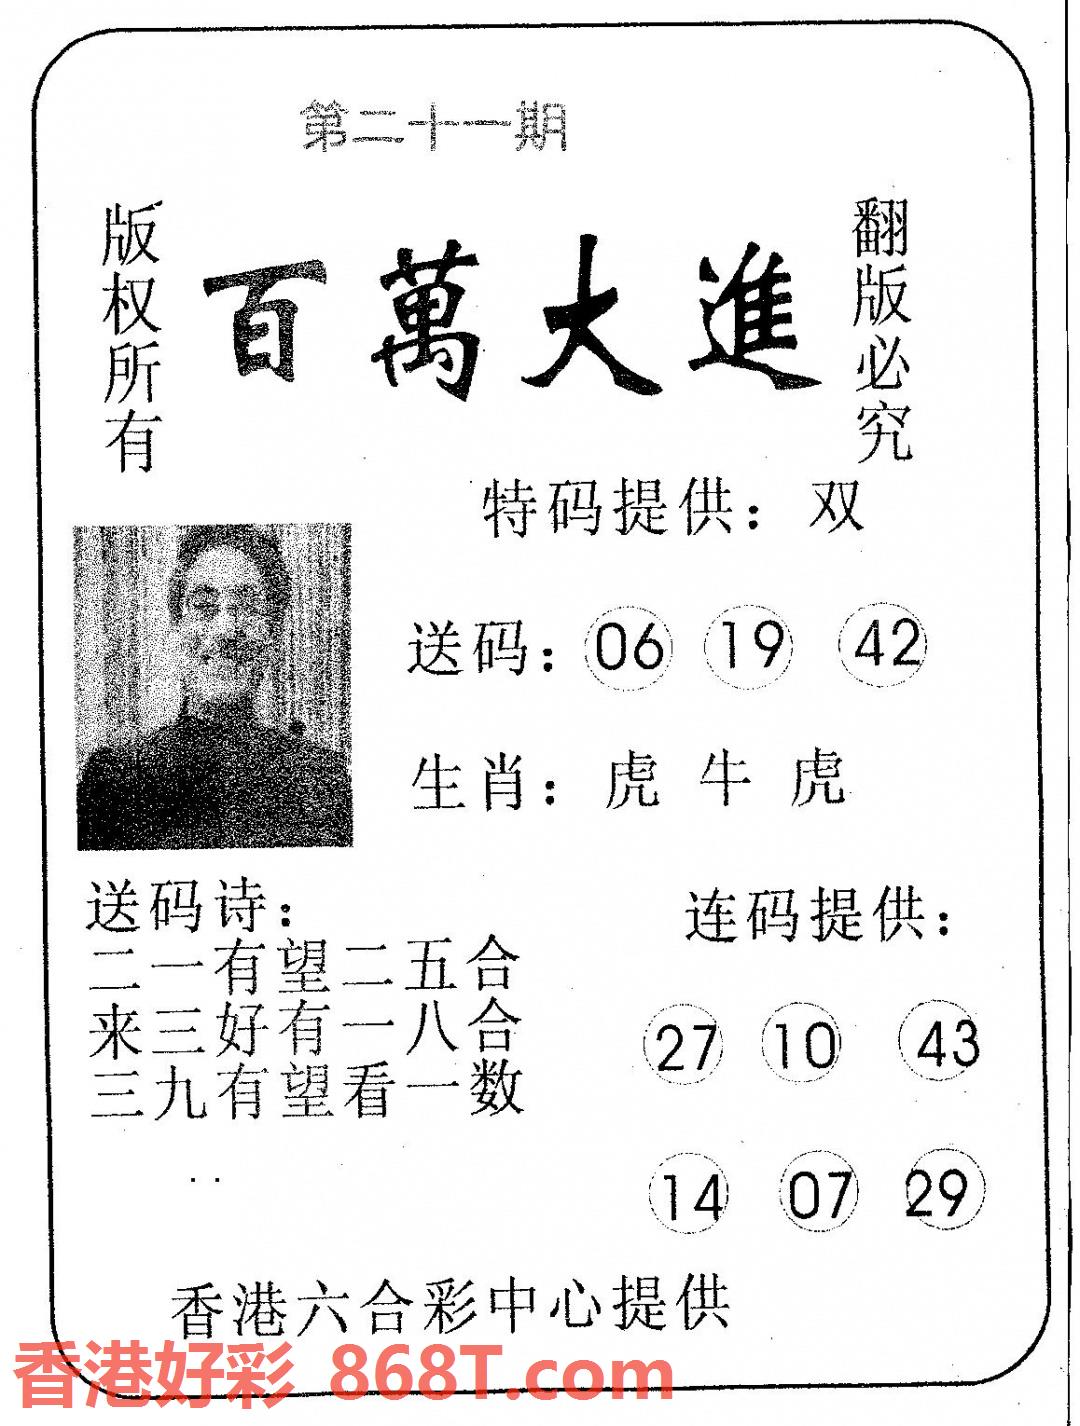 第二十一期
版权所有
百萬大進
翻版必究
特码提供：双
送码：06 19 42
生肖：虎 牛 虎
送码诗：
二一有望二五合
来三好有一八合
三九有望看一数
连码提供：
27 10 43
14 07 29
香港六合彩中心提供
香港好彩 868T.com